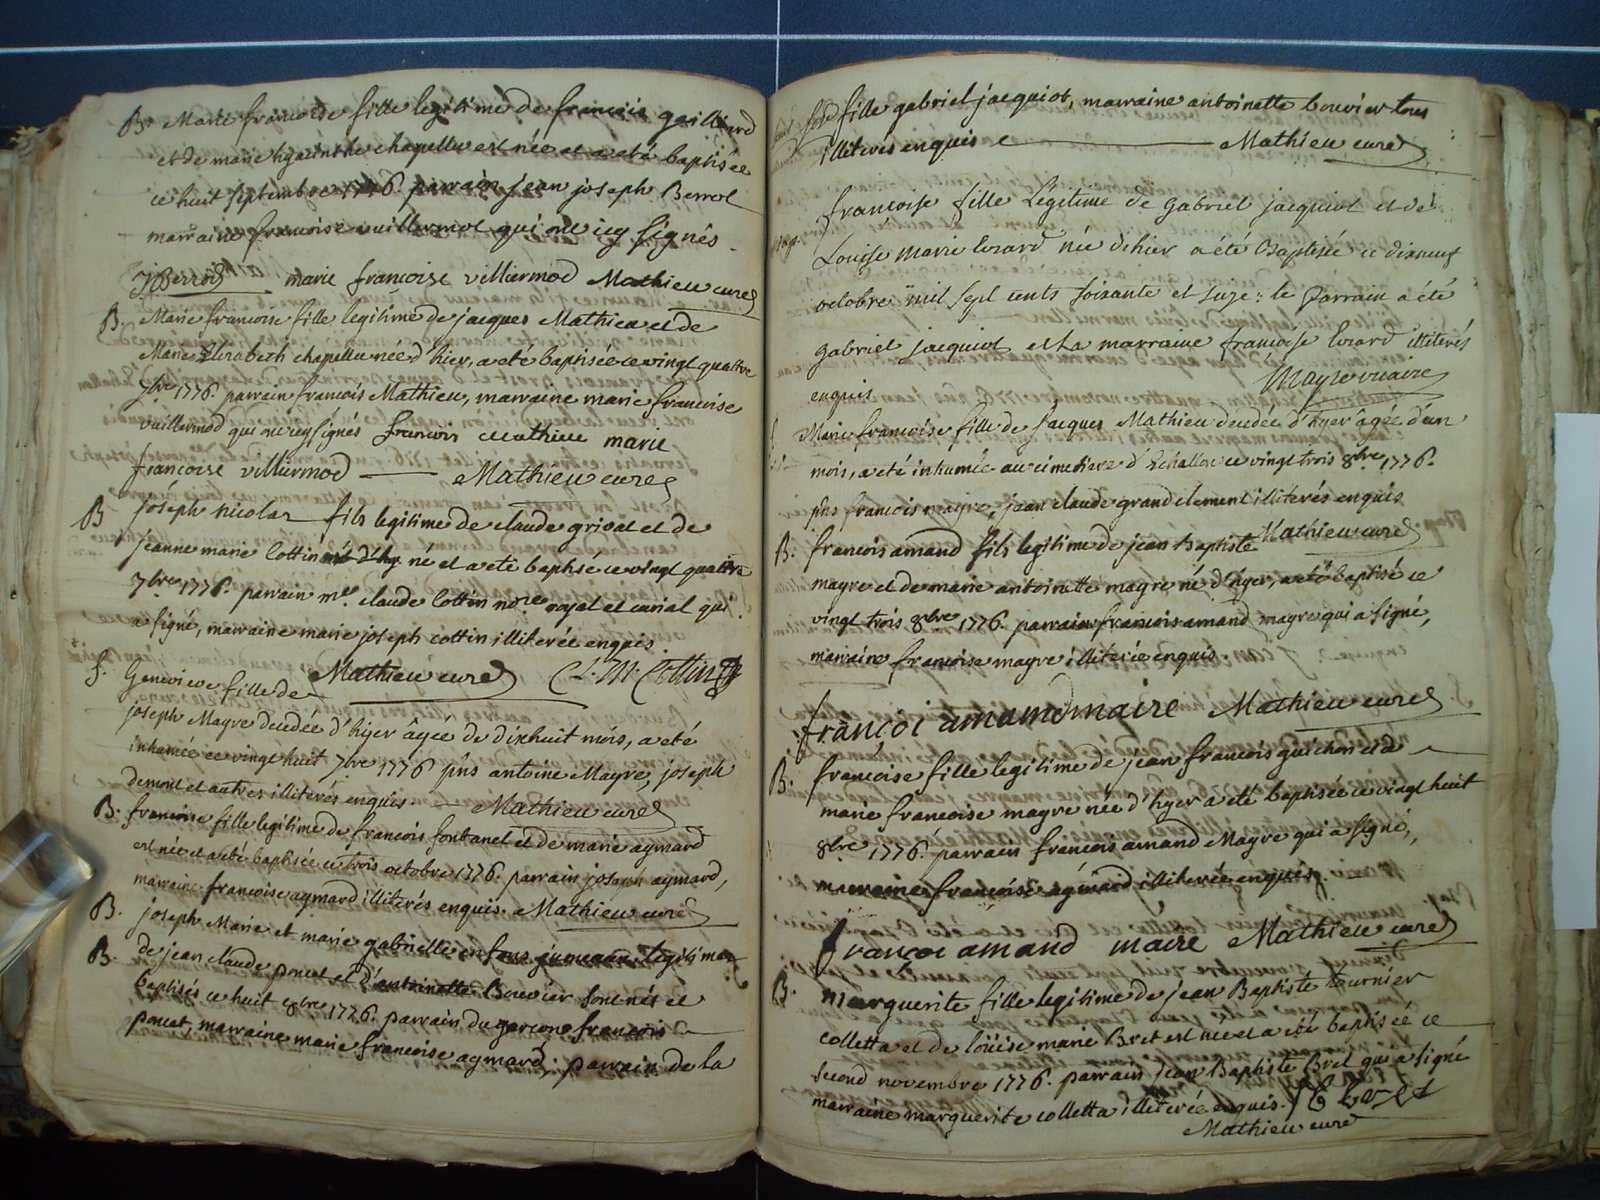 B. Marie francoise fille legitime de francois gaillard
et de marie hyacinthe chapellu est née et a eté baptisée
ce huit septembre 1776. parrain jean joseph Berrod
marraine francoise vuillermot qui ont icy signés
JJBerrod marie francoise villiermod Mathieu curé
B. Marie francoise fille legitime de jacques Mathieu et de
Marie Elizabeth chapellu née d'hier, a eté baptisée ce vingt quattre
7bre 1776. parrain francois Mathieu, marraine marie francoise
vuillermod qui ont icy signés francois Mathieu marie
francoise villiermod Mathieu curé
B joseph nicolas fils legitime de claude grivat et de
jeanne marie Cottin né et a eté baptisé ce vingt quattre
7bre 1776. parrain mre claude Cottin nore royal et curial qui
a signé, marraine marie joseph cottin illiterée enquis.
Mathieu curé C. M. Cottin
f. Genevieve fille de
joseph Mayre decedée d'hyer âgée de dixhuit mois, a eté
inhumée ce vingt huit 7bre 1776 pñs antoine Mayre, joseph
demont et autres illiterés enquis Mathieu curé
B. francoise fille legitime de francois fontanel et de marie aymard
est née et a eté baptisée ce trois octobre 1776. parrain joseph aymard,
marraine francoise aymard illiterés enquis. Mathieu curé
B. joseph Marie et marie gabrielle enfans jumeaux legitimes
B. de jean claude poncet et d'antoinette Bouvier sont nés et
baptisés ce huit 8bre 1776. parrain du garcon francois
poncet, marraine marie francoise aymard; parrain de la
fille gabriel jacquiot, marraine antoinette bouvier tous
illiterés enquis Mathieu curé
francoise fille Légitime de gabriel jacquiot et de
Louise Marie Evrard née d'hier a été Baptisée ce dixneuf
octobre mil sept cents soixante et seize: le Parrain a été
gabriel jacquiot et La marraine francoise Evrard illiterés
enquis Mayre vicaire
Marie francoise fille de Jacques Mathieu decedée d'hyer âgée d'un
mois, a eté inhumée au cimetiere d'Echallon ce vingt trois 8bre 1776.
pñs francois mayre, jean claude grandclement illiterés enquis
Mathieu curé
B. francois amand fils legitime de jean baptiste
mayre et de marie antoinette mayre né d'hyer, a eté baptisé ce
vingt trois 8bre 1776. parrain francois amand mayre qui a signé,
marraine francoise mayre illiterée enquis.
françoi amand maire Mathieu curé
B. francoise fille legitime de jean francois guichon et de
marie francoise mayre née d'hyer a eté baptisée ce vingt huit
8bre 1776. parrain francois amand Mayre qui a signé,
marraine francoise aymard illiterée enquis.
françoi amand maire Mathieu curé
B. marguerite fille legitime de jean Baptiste tournier
colletta et de loüise marie Bret est née et a eté baptisée ce
second novembre 1776. parrain jean Baptiste Bret qui a signé
marraine marguerite colletta illiterée enquis. JB Bret
Mathieu curé